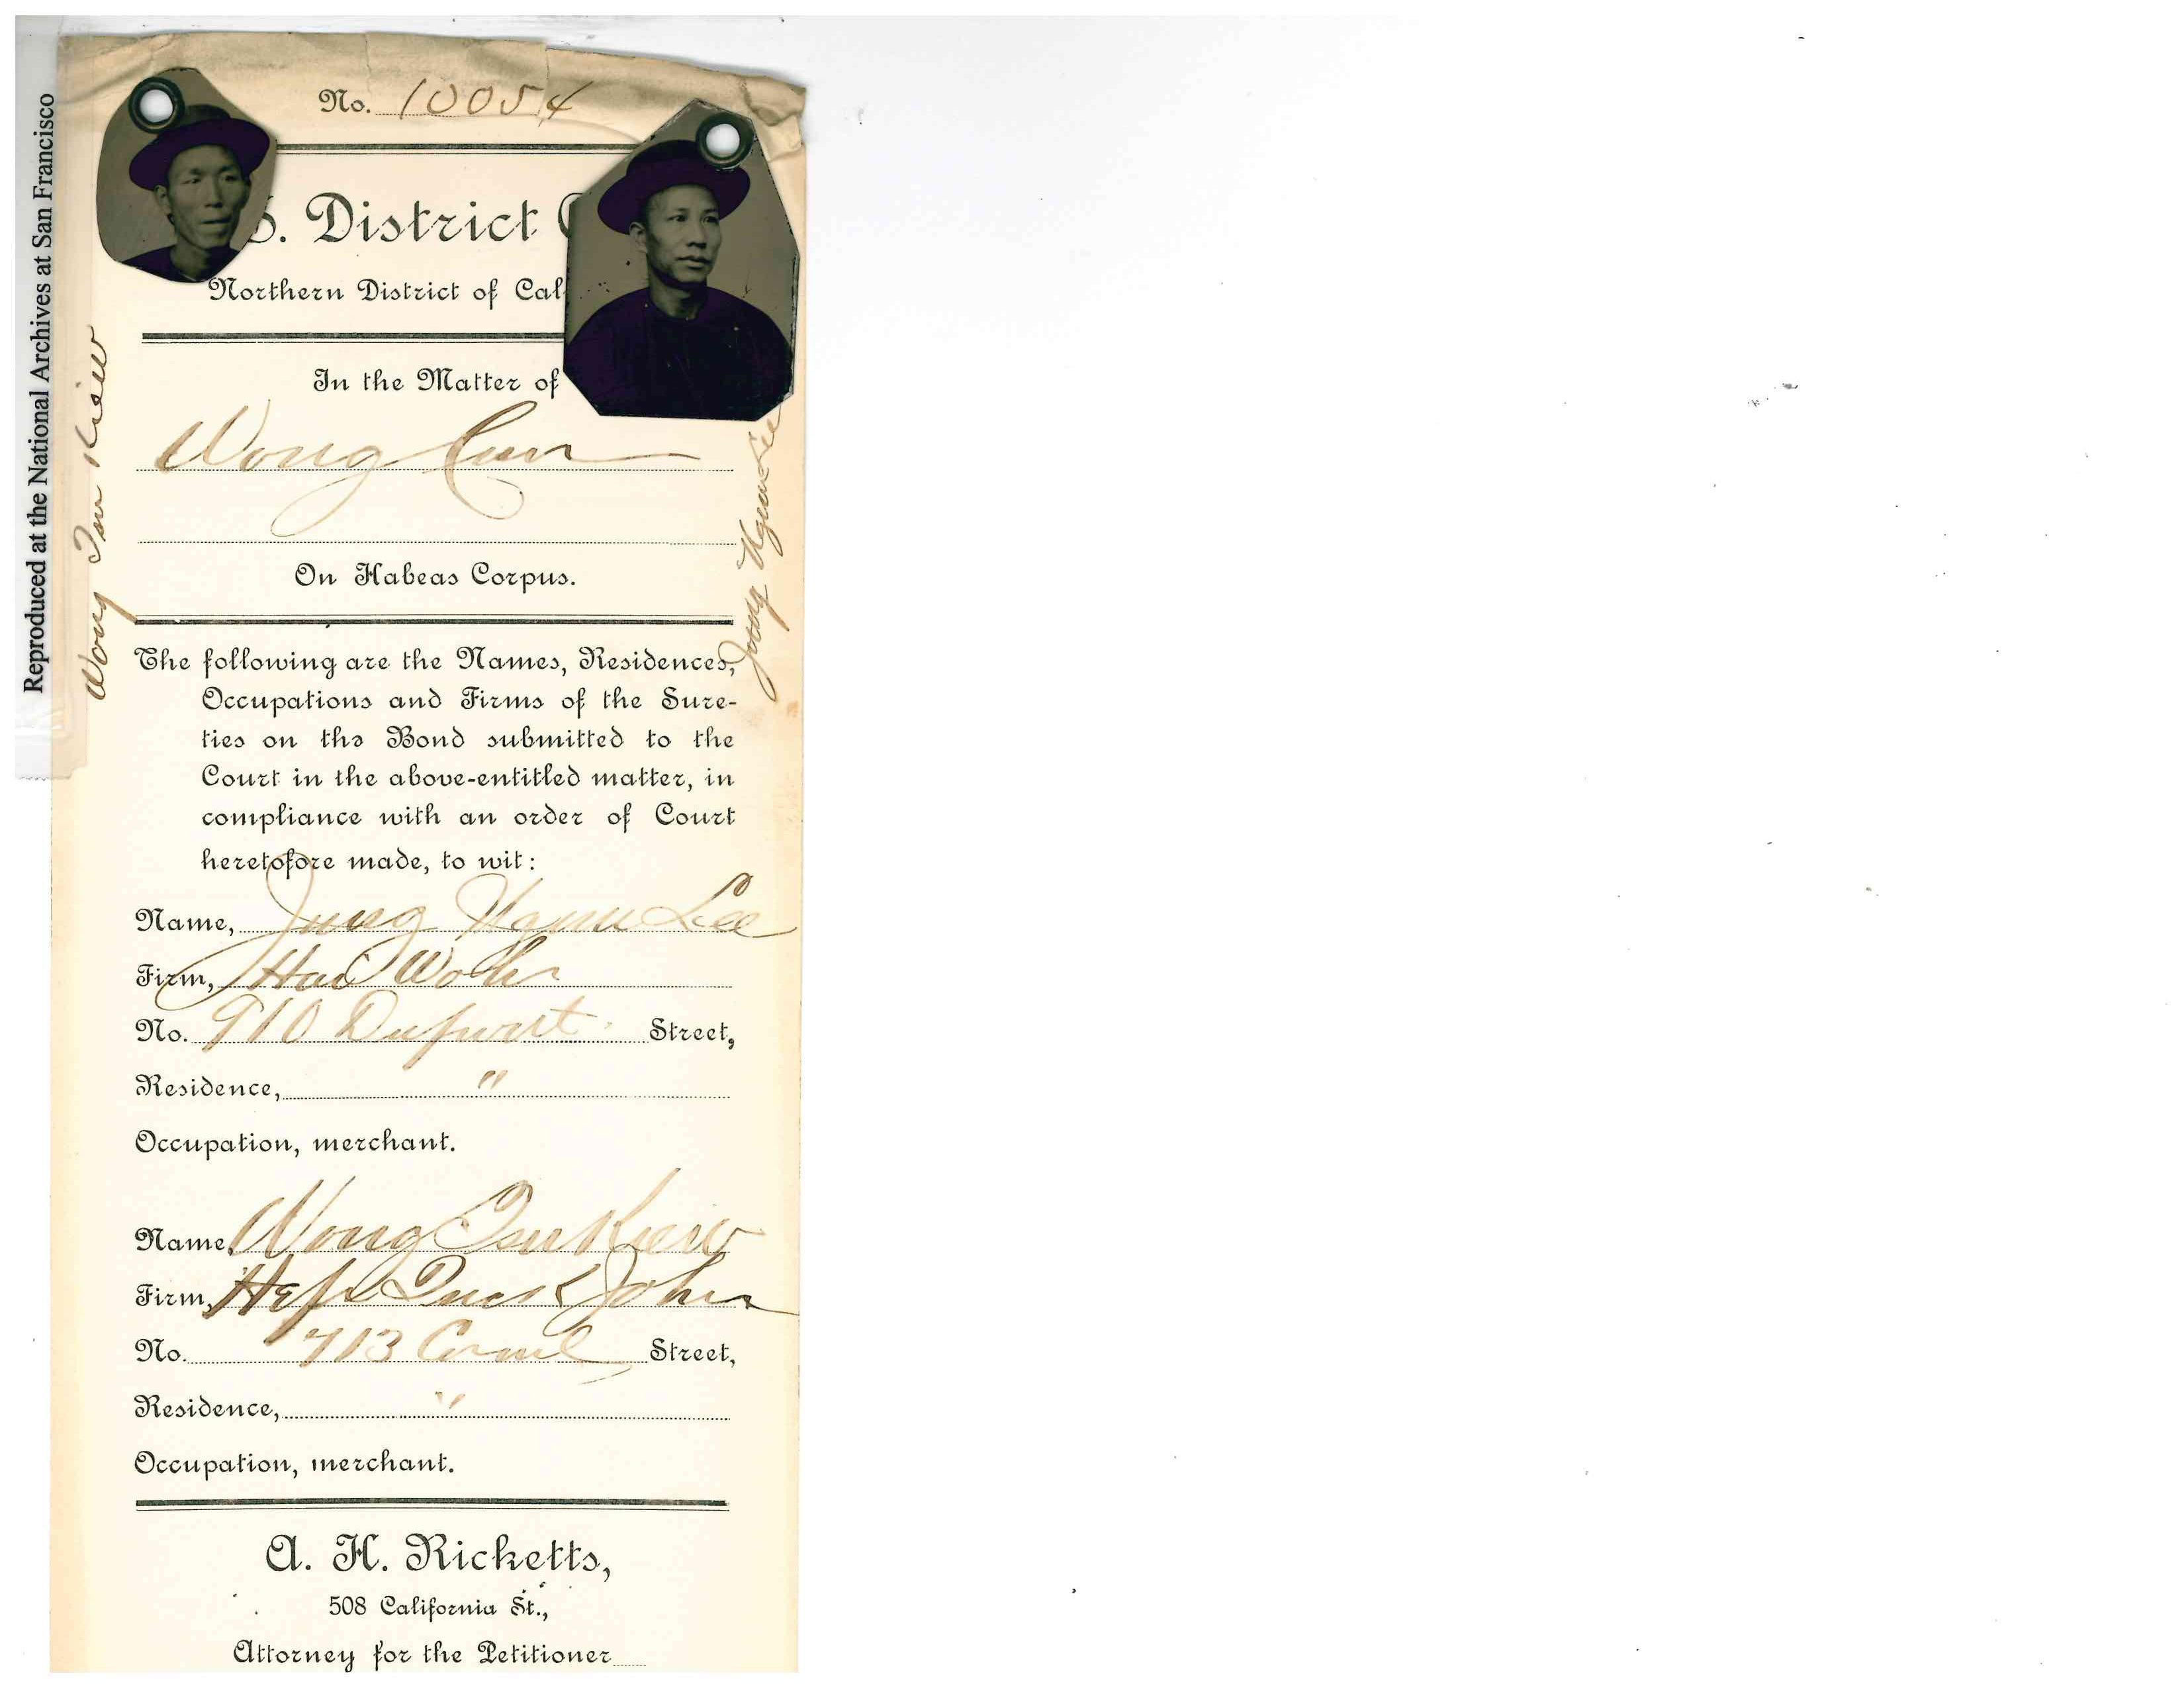 Reproduced at the National Archives at San Francisco
No. 10054
S. District
Northern District of Cal
In the Matter of
Wong
On Habeas Corpus.
Wong Kiew
Lee
The following are the Names, Residences,
Occupations and Firms of the Sure-
ties on the Bond submitted to the
Court in the above-entitled matter, in
compliance with an order of Court
heretofore made, to wit:
Name, Lee
Firm,
No. 910 Dupont Street,
Residence, "
Occupation, merchant.
Name, Wong Kiew
Firm,
No. 713 Street,
Residence, "
Occupation, merchant.
A. H. Ricketts,
508 California St.,
Attorney for the Petitioner